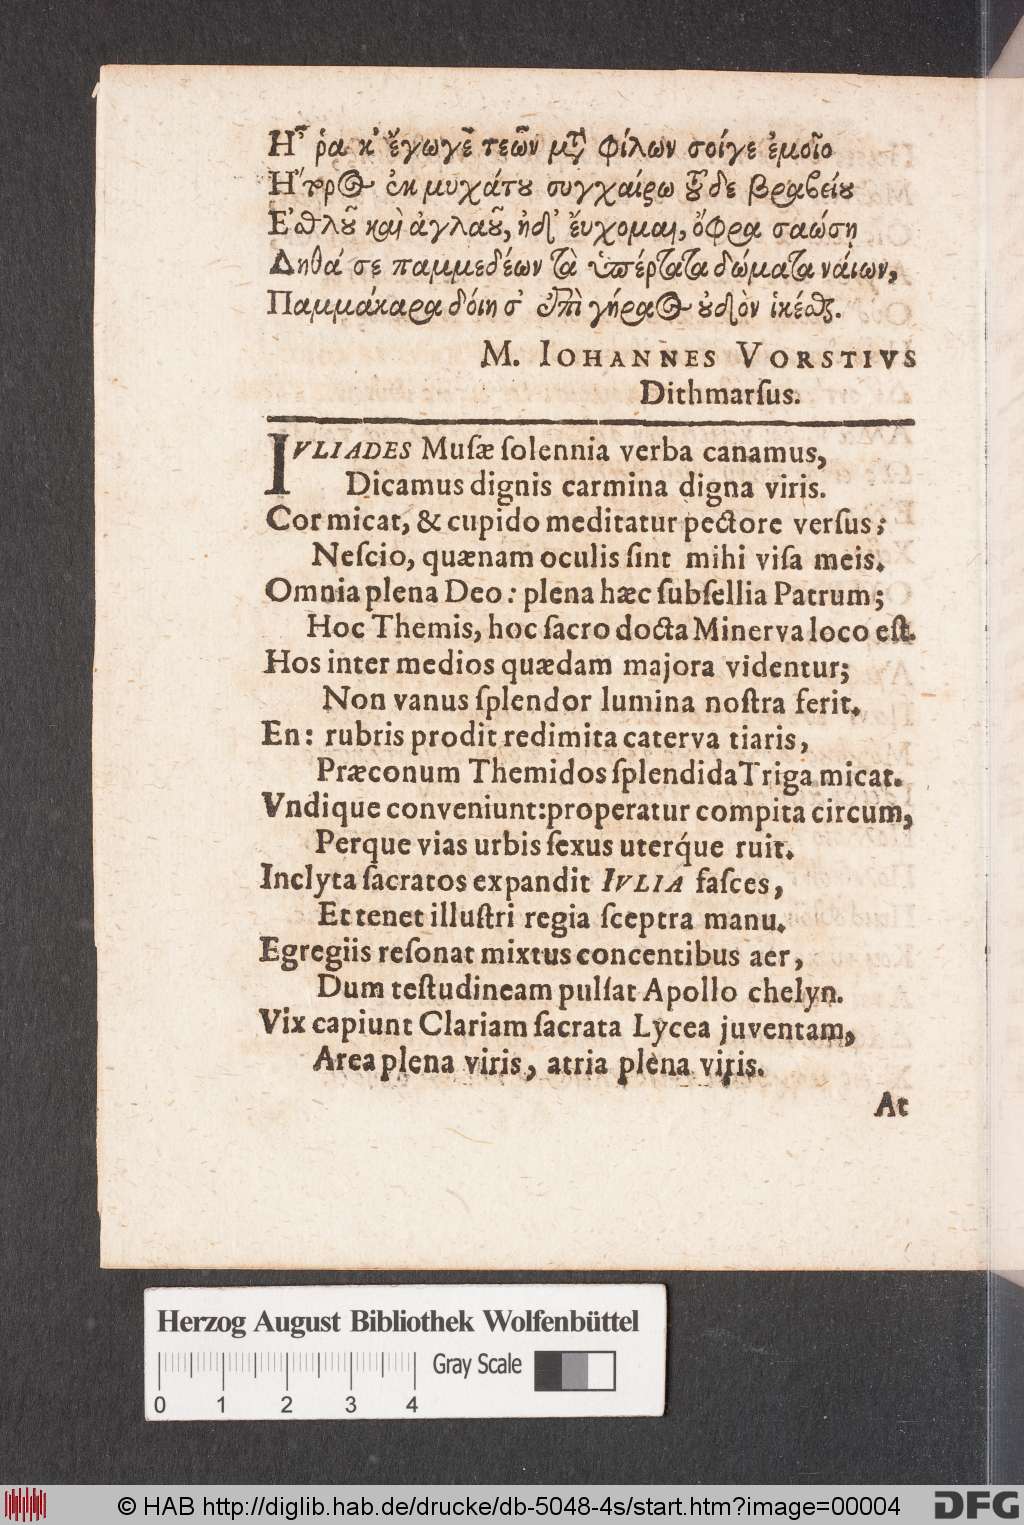 Ἦ ῥα κ' ἔγωγε τεῶν μετὰ φίλων σοίγε ἐμοῖο
Ἤτορ ἐκ μυχάτου συγχαίρω τοῦδε βραβείου
Ἐσθλοῦ καὶ ἀγλαοῦ, ἠδ' ἔυχομαι, ὄφρα σαώσῃ
Δηθά σε παμμεδέων τὰ ὑπέρτατα δώματα νάιων,
Παμμάκαρα δόιη σ' ἐπὶ γήραος οὐδὸν ἱκέσθαι.
M. IOHANNES VORSTIVS
Dithmarſus.
IVLIADES Muſæ ſolennia verba canamus,
Dicamus dignis carmina digna viris.
Cor micat, & cupido meditatur pectore verſus;
Neſcio, quænam oculis ſint mihi viſa meis.
Omnia plena Deo: plena hæc ſubſellia Patrum;
Hoc Themis, hoc ſacro docta Minerva loco eſt.
Hos inter medios quædam majora videntur;
Non vanus ſplendor lumina noſtra ferit.
En: rubris prodit redimita caterva tiaris,
Præconum Themidos ſplendida Triga micat.
Vndique conveniunt: properatur compita circum,
Perque vias urbis ſexus uterq́ue ruit.
Inclyta ſacratos expandit IVLIA faſces,
Et tenet illuſtri regia ſceptra manu.
Egregiis reſonat mixtus concentibus aer,
Dum teſtudineam pulſat Apollo chelyn.
Vix capiunt Clariam ſacrata Lycea juventam,
Area plena viris, atria plena viris.
At
Herzog August Bibliothek Wolfenbüttel
Gray Scale
0 1 2 3 4
© HAB http://diglib.hab.de/drucke/db-5048-4s/start.htm?image=00004
DFG